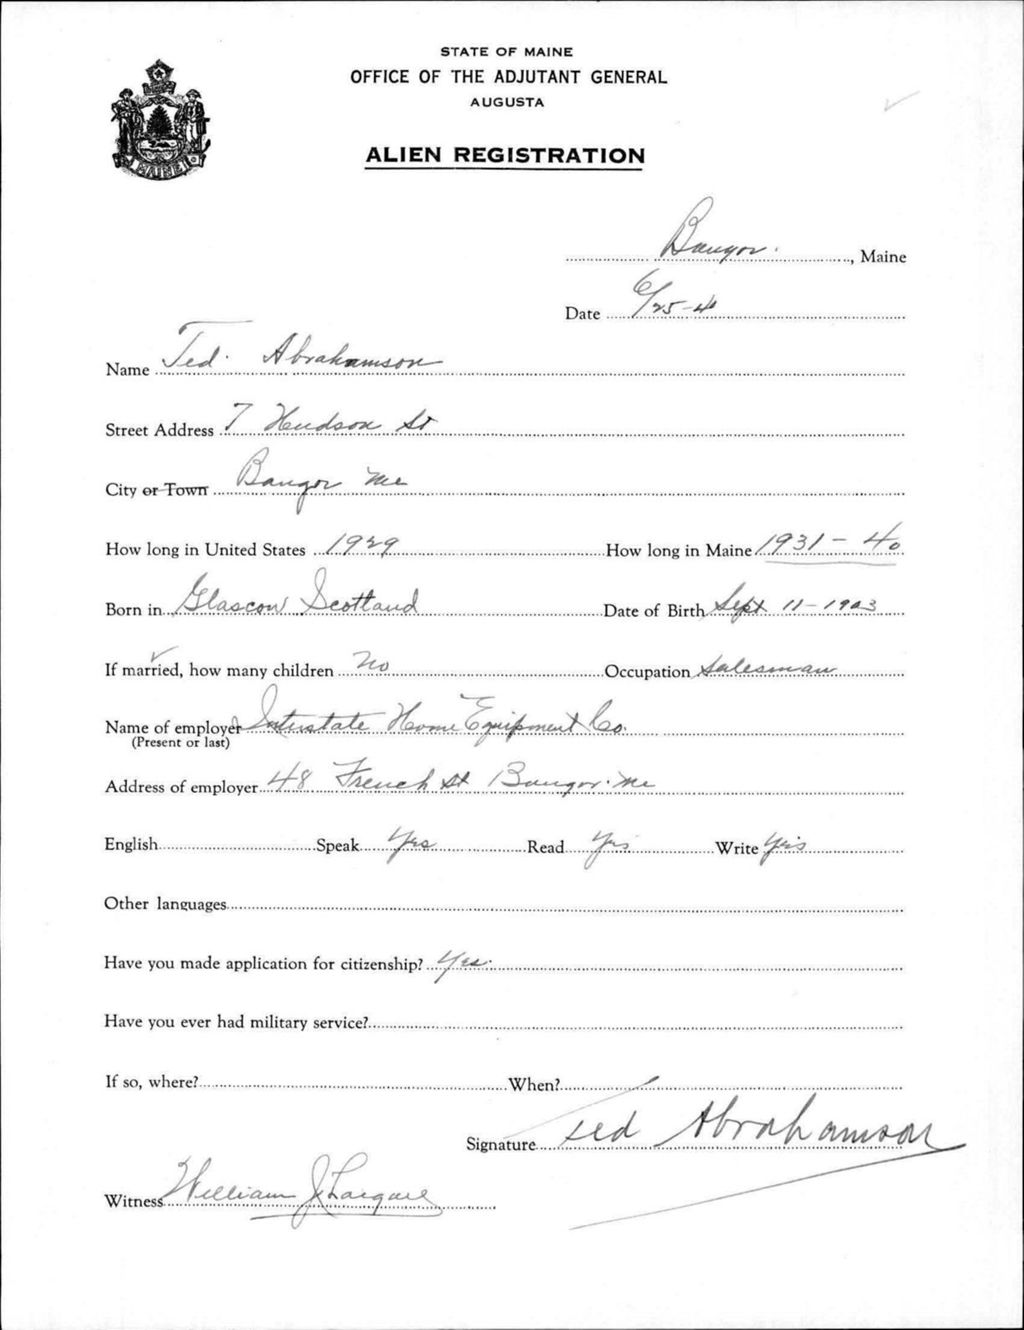 STATE OF MAINE
OFFICE OF THE ADJUTANT GENERAL
AUGUSTA
ALIEN REGISTRATION
MAINE
Bangor, Maine
Date 6/25-40
Name Ted Abrahamson
Street Address 7 Hudson St
City or Town Bangor Me
How long in United States 1929 How long in Maine 1931-40
Born in Glascow Scotland Date of Birth Sept 11-1903
If married, how many children No Occupation Salesman
Name of employer Interstate Home Equipment Co.
(Present or last)
Address of employer 48 French St Bangor Me
English Speak Yes Read Yes Write Yes
Other languages
Have you made application for citizenship? Yes.
Have you ever had military service?
If so, where? When?
Signature Ted Abrahamson
Witness William J